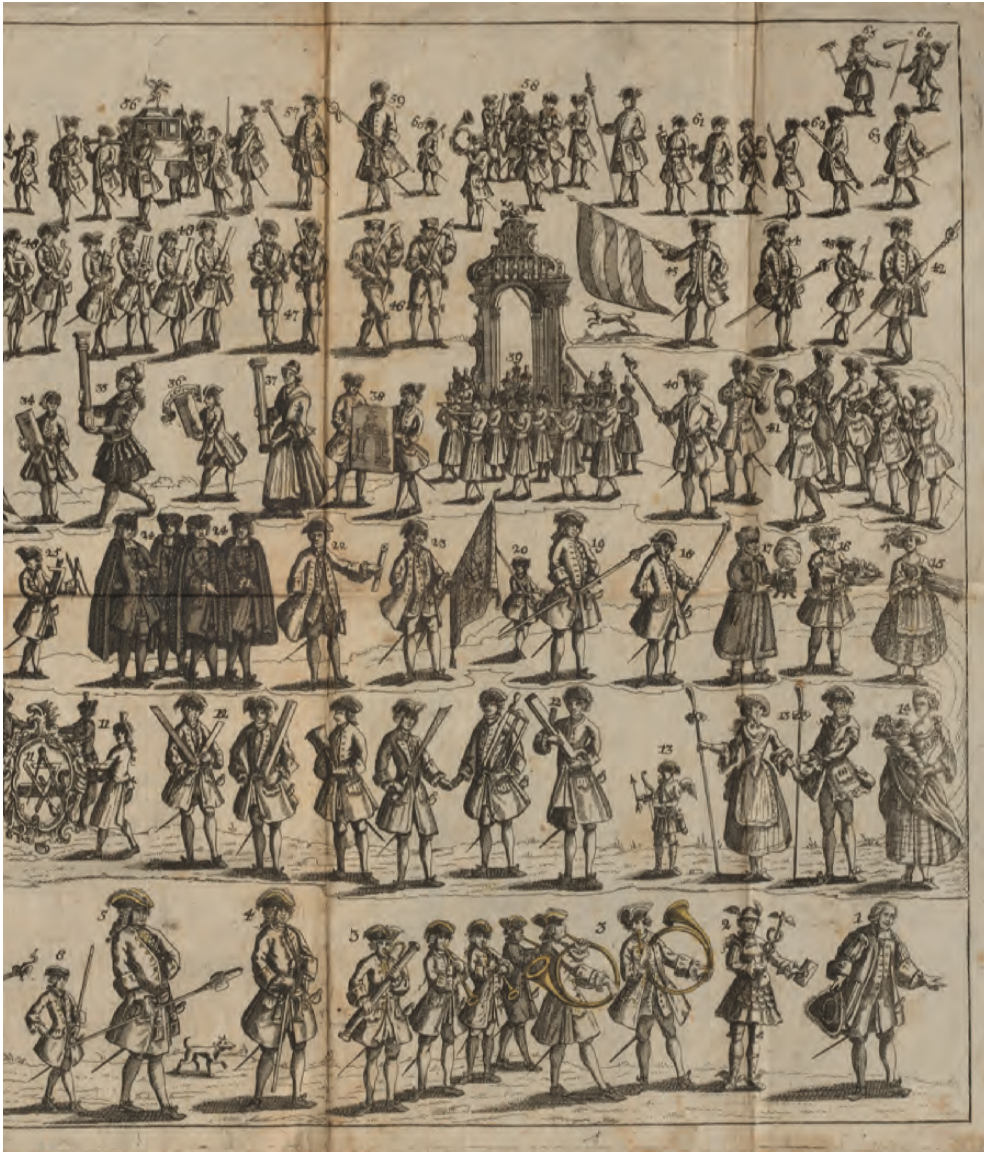 64
56 57 59 60 58 61 62 63
48 47 46 45 44 43 42
34 35 36 37 38 39 40 41
25 24 24 22 23 20 19 16 17 18 15
11 11 12 12 13 13 14
6 5 4 3 3 2 1